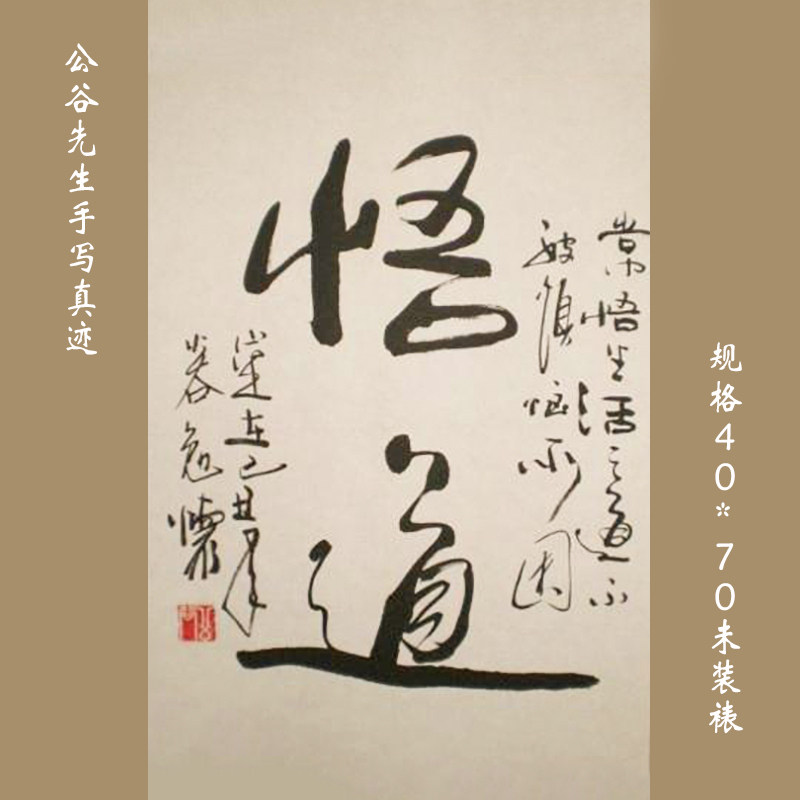 公谷先生手写真迹
常悟生活之道不
被烦恼所困
悟道
在己丑年
规格40*70未装裱